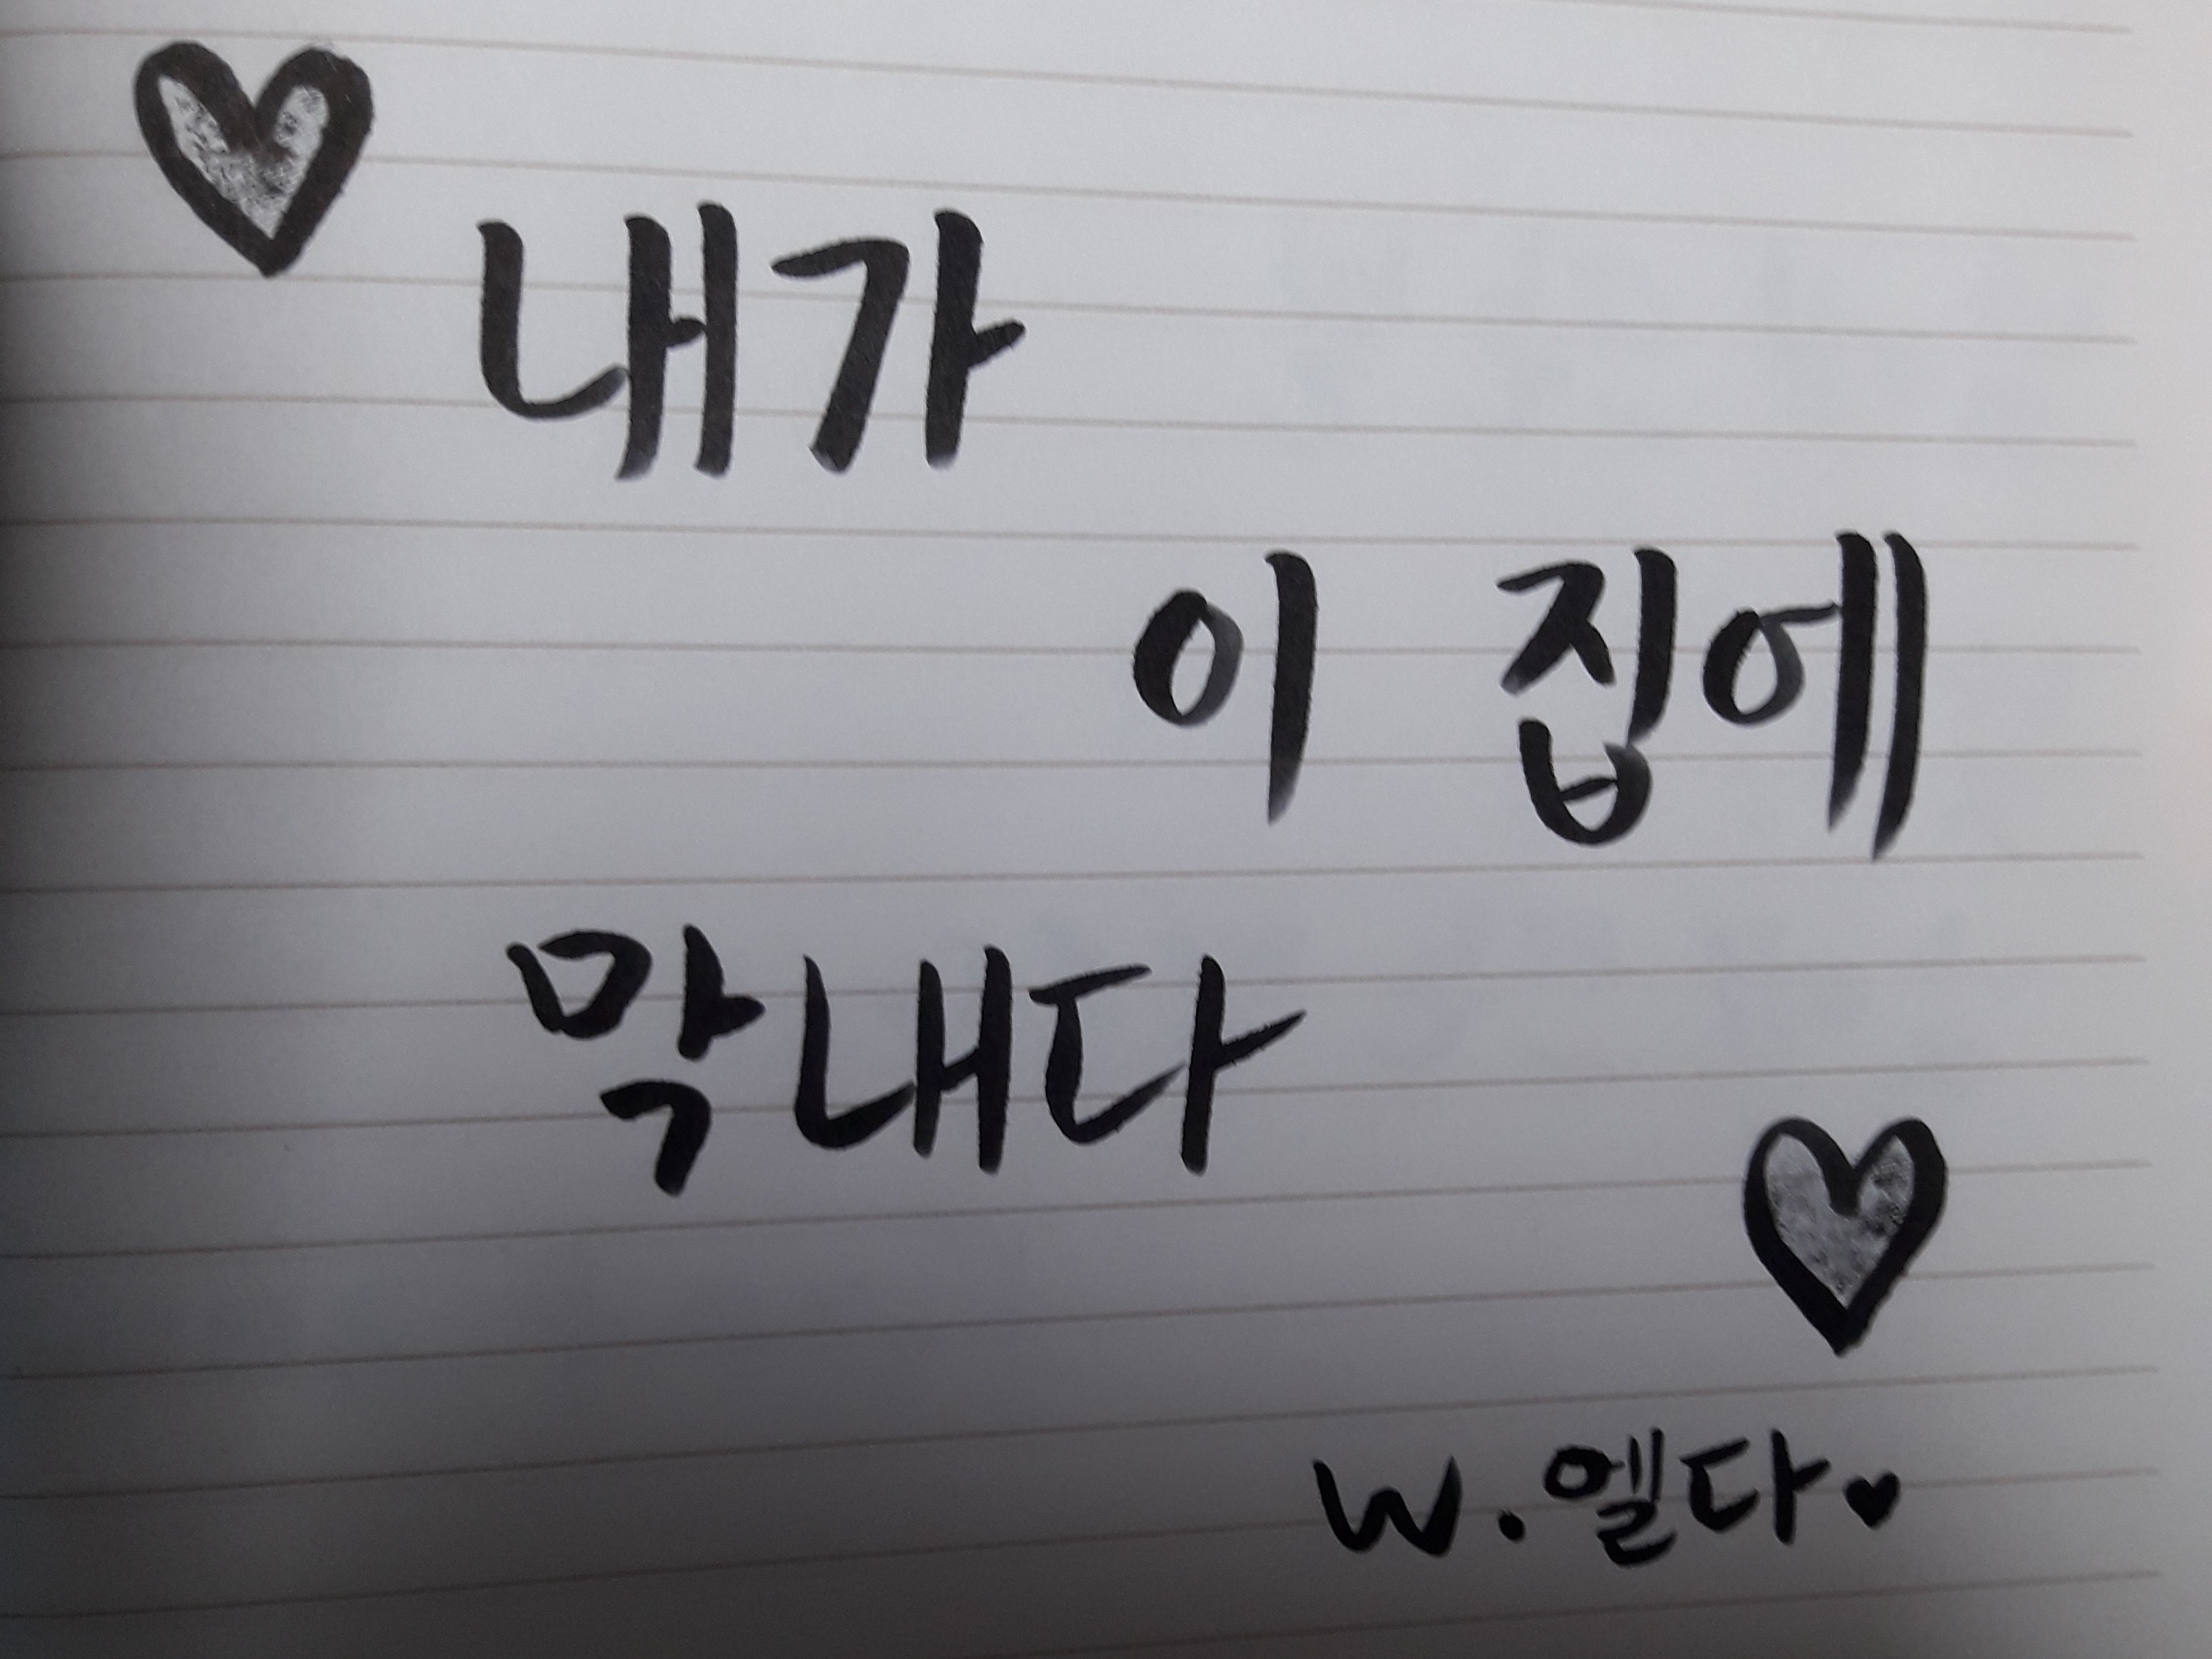 내가
이 집에
막내다
W.엘다♥